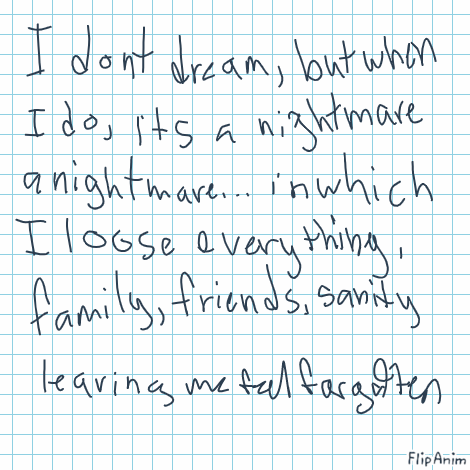 I dont dream, but when
I do, it's a nightmare
a nightmare... in which
I loose everything,
family, friends, sanity
leaving me feel forgotten
FlipAnim